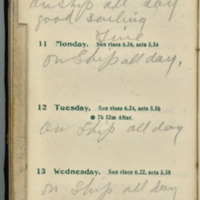 on ship all day
good sailing
Fine
11 Monday. Sun rises 6.26, sets 5.54
on Ship all day,
12 Tuesday. Sun rises 6.24, sets 5.56
7h 52m After.
on Ship all day
13 Wednesday. Sun rises 6.22, sets 5.58
on Ship all day